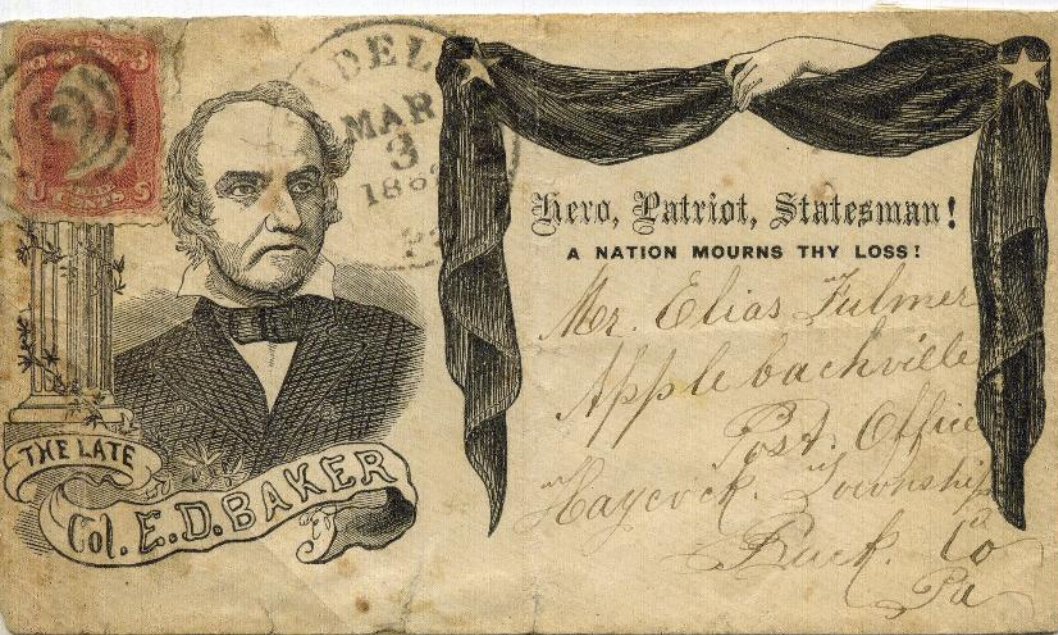 3 3
U S
CENTS
DEL
MAR
3
186
Hero, Patriot, Statesman!
A NATION MOURNS THY LOSS!
Mr. Elias Fulmer
Applebachville
Post. Office
Haycock. Township
Buck. Co
Pa
THE LATE
Col. E.D. BAKER